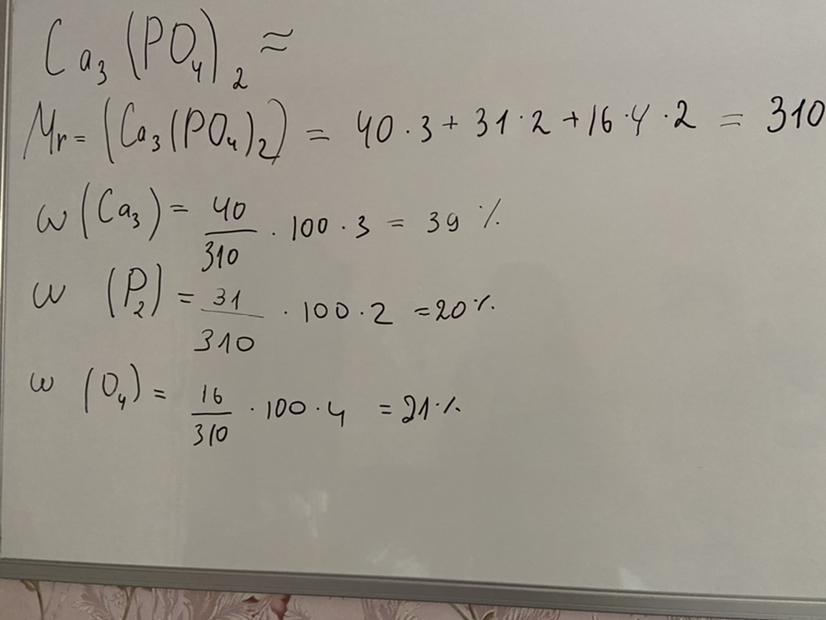 Ca₃(PO₄)₂ ≈
Mr = (Ca₃(PO₄)₂) = 40 · 3 + 31 · 2 + 16 · 4 · 2 = 310
ω (Ca₃) = 40/310 · 100 · 3 = 39 %
ω (P₂) = 31/310 · 100 · 2 = 20 %
ω (O₄) = 16/310 · 100 · 4 = 21 %